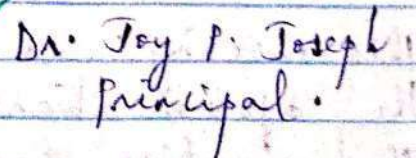 Dr. Joy P. Joseph.
Principal.